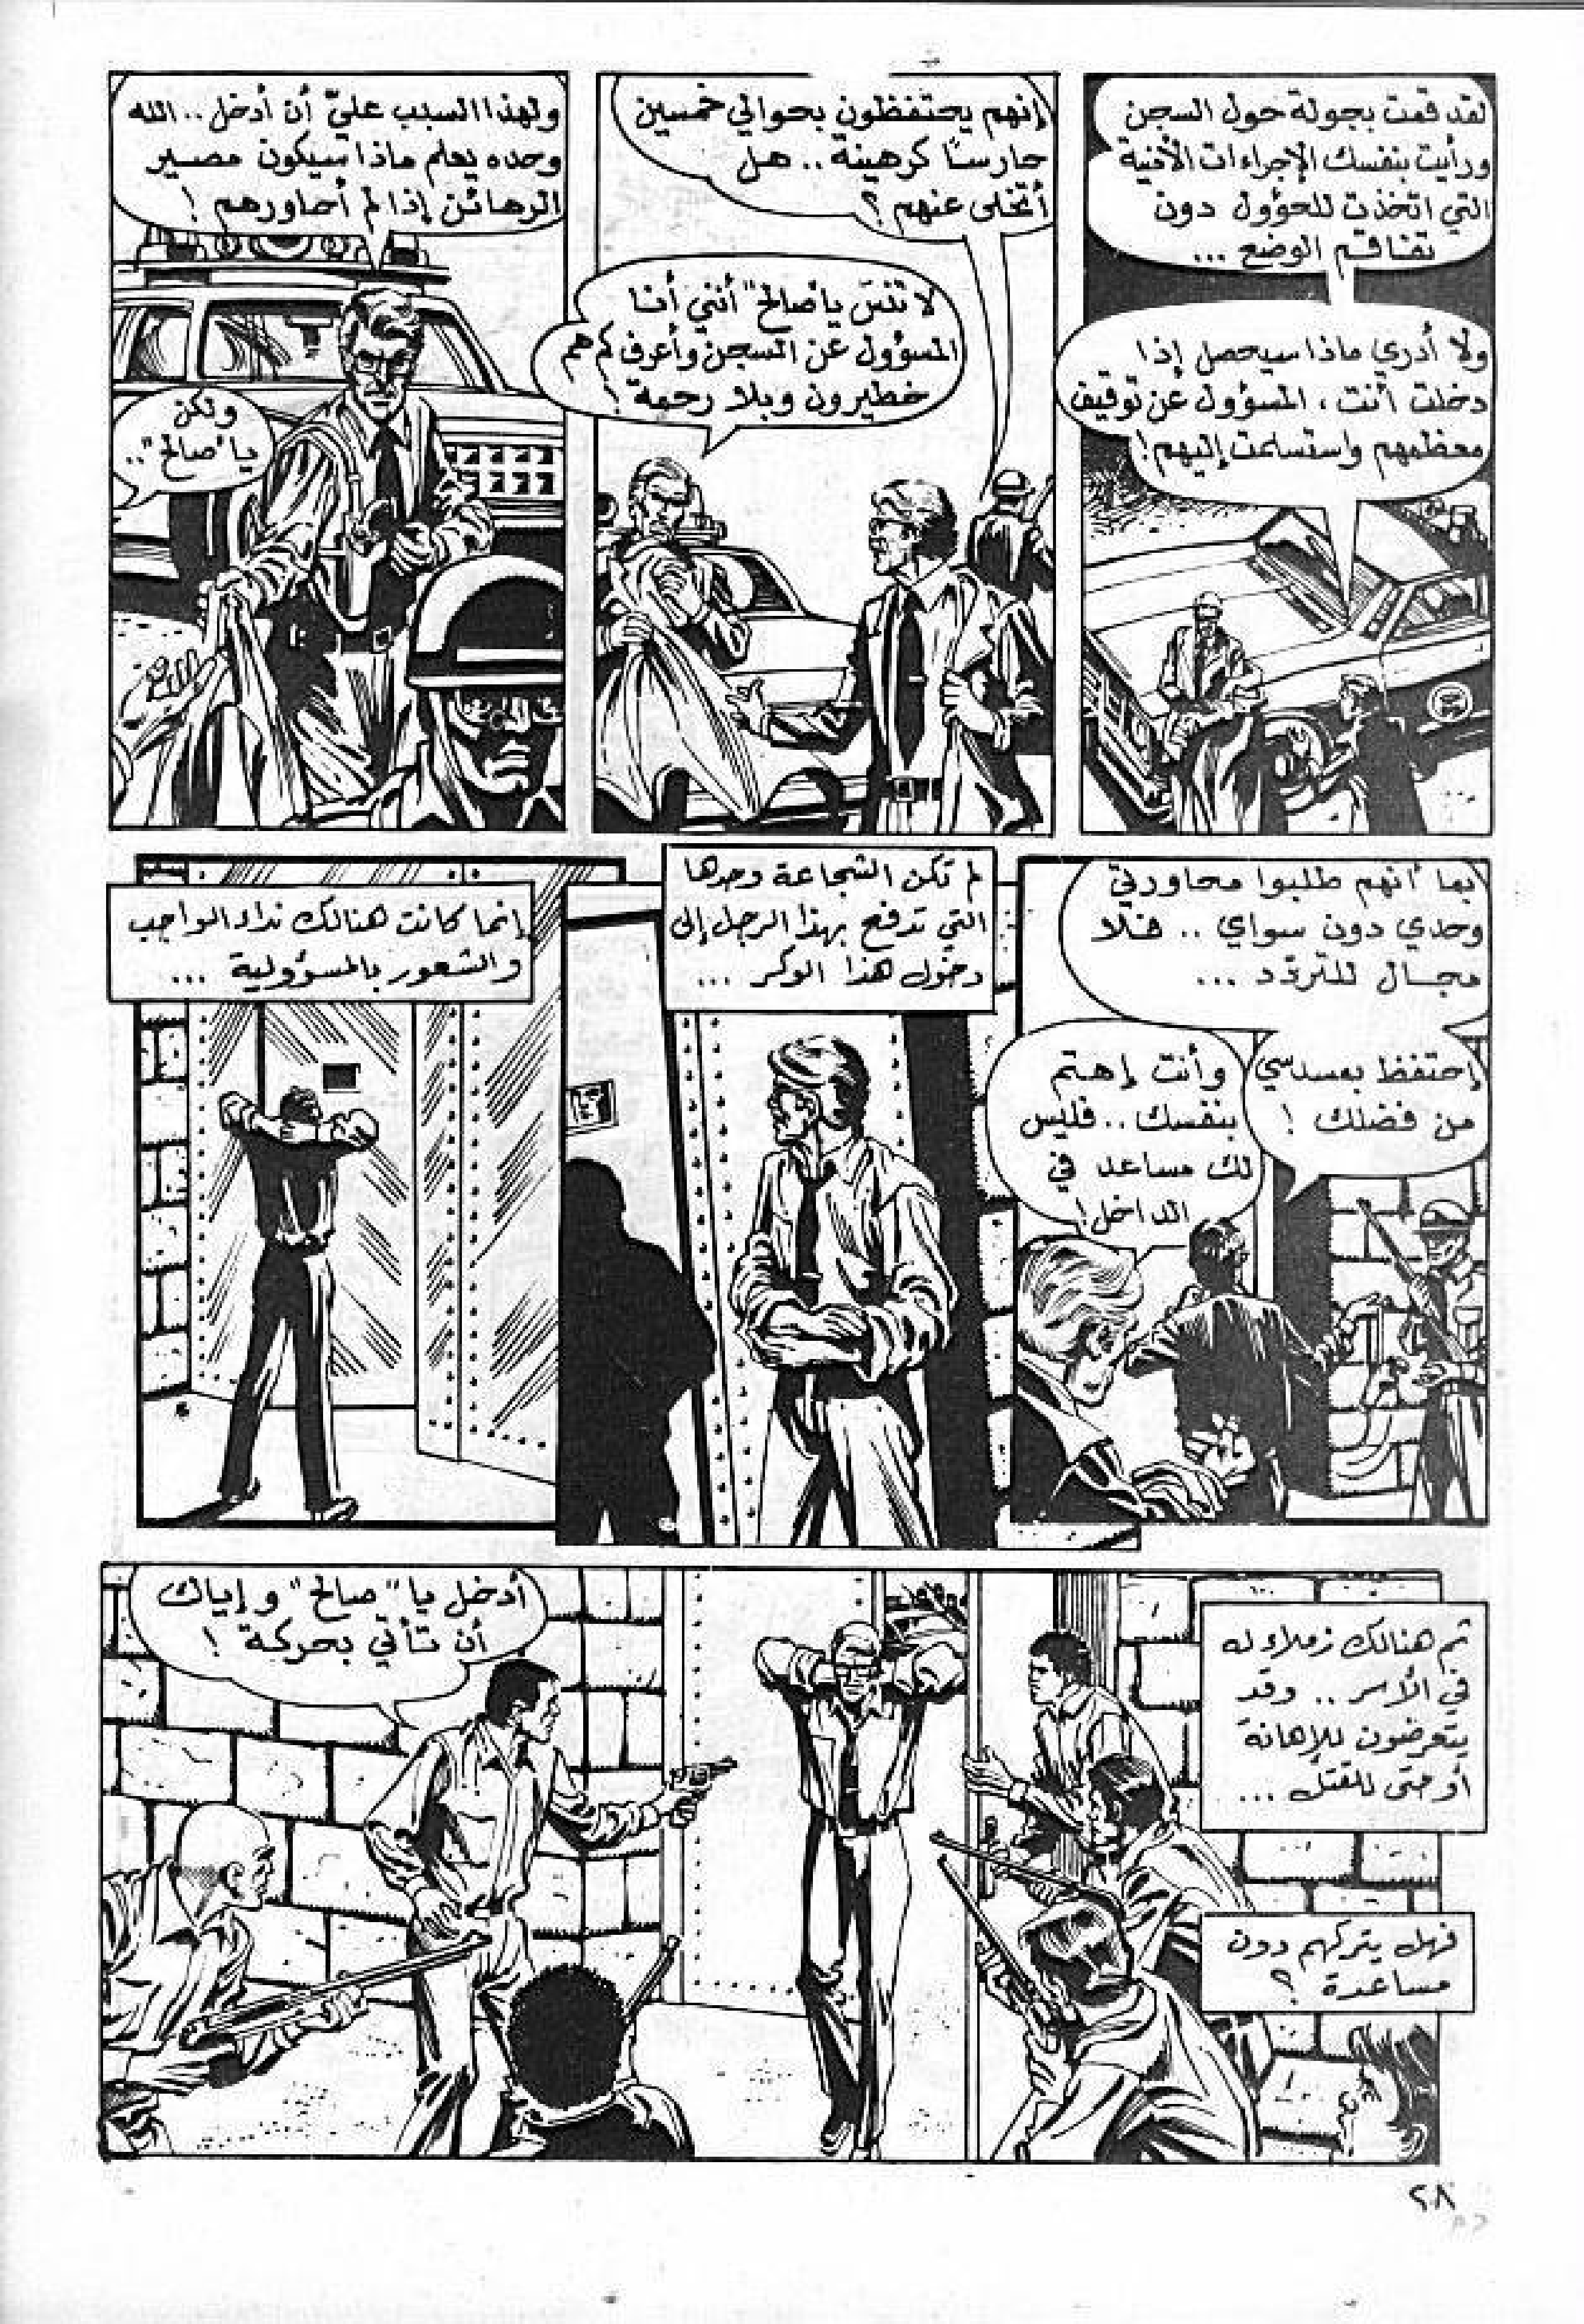 لقد قمت بجولة حول السجن
ورأيت بنفسك الإجراءات الأمنية
التي اتخذت للحؤول دون
تفاقم الوضع ...
ولا أدري ماذا سيحصل إذا
دخلت أنت، المسؤول عن توقيف
معظمهم واستسلمت إليهم!
إنهم يحتفظون بحوالي خمسين
حارسًا كرهينة .. هل
أتخلى عنهم؟
لا تنسَ يا "صالح" أنني أنا
المسؤول عن السجن وأعرف كم هم
خطيرون وبلا رحمة!
ولهذا السبب عليّ أن أدخل .. الله
وحده يعلم ماذا سيكون مصير
الرهائن إذا لم أحاورهم!
ولكن
يا "صالح" ..
بما أنهم طلبوا محاورتي
وحدي دون سواي .. فلا
مجال للتردّد ...
إحتفظ بمسدسي
من فضلك!
وأنت إهتم
بنفسك .. فليس
لك مساعد في
الداخل!
لم تكن الشجاعة وحدها
التي تدفع بهذا الرجل إلى
دخول هذا الوكر ...
إنما كانت هنالك نداء الواجب
والشعور بالمسؤولية ...
ثم هنالك زملاء له
في الأسر .. وقد
يتعرضون للإهانة
أو حتى للقتل ...
فهل يتركهم دون
مساعدة؟
أدخل يا "صالح" وإياك
أن تأتي بحركة!
٢٨